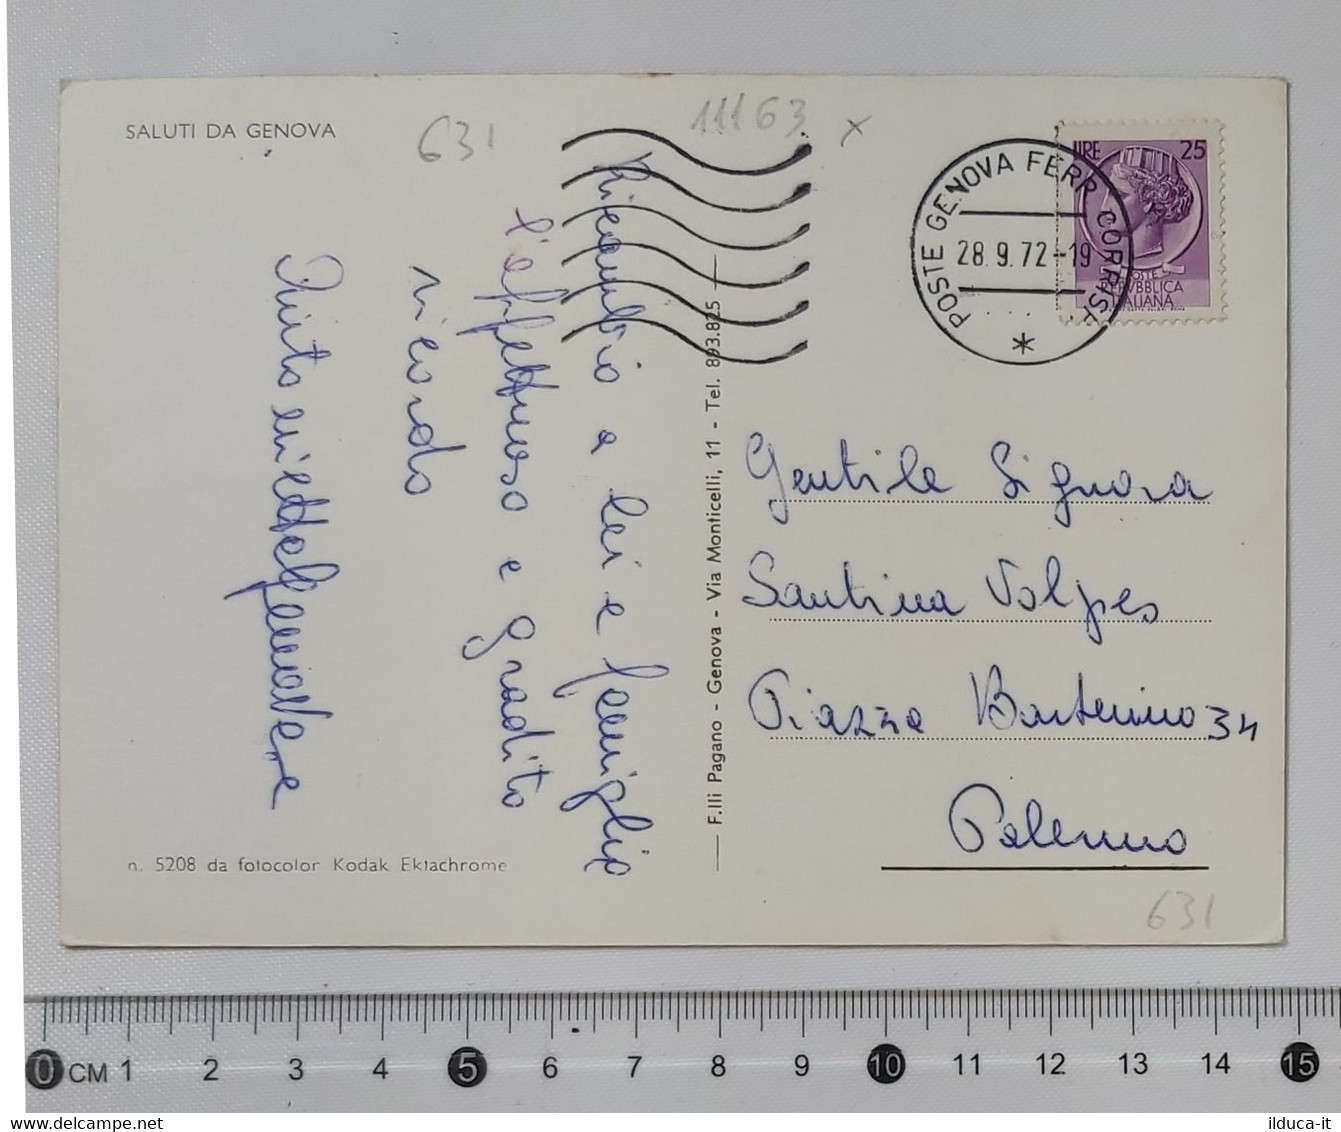 SALUTI DA GENOVA
631
11163 x
POSTE GENOVA FERR. CORRISP.
28.9.72-19
LIRE 25
POSTE
REPUBBLICA
ITALIANA
Ricambio a lei e famiglia
l'affettuoso e gradito
ricordo
F.lli Pagano - Genova - Via Monticelli, 11 - Tel. 893.825
Gentile Signora
Santina Volpes
Piazza Bonterino 34
Palermo
n. 5208 da fotocolor Kodak Ektachrome
631
0 CM 1 2 3 4 5 6 7 8 9 10 11 12 13 14 15
delcampe.net
ilduca-it